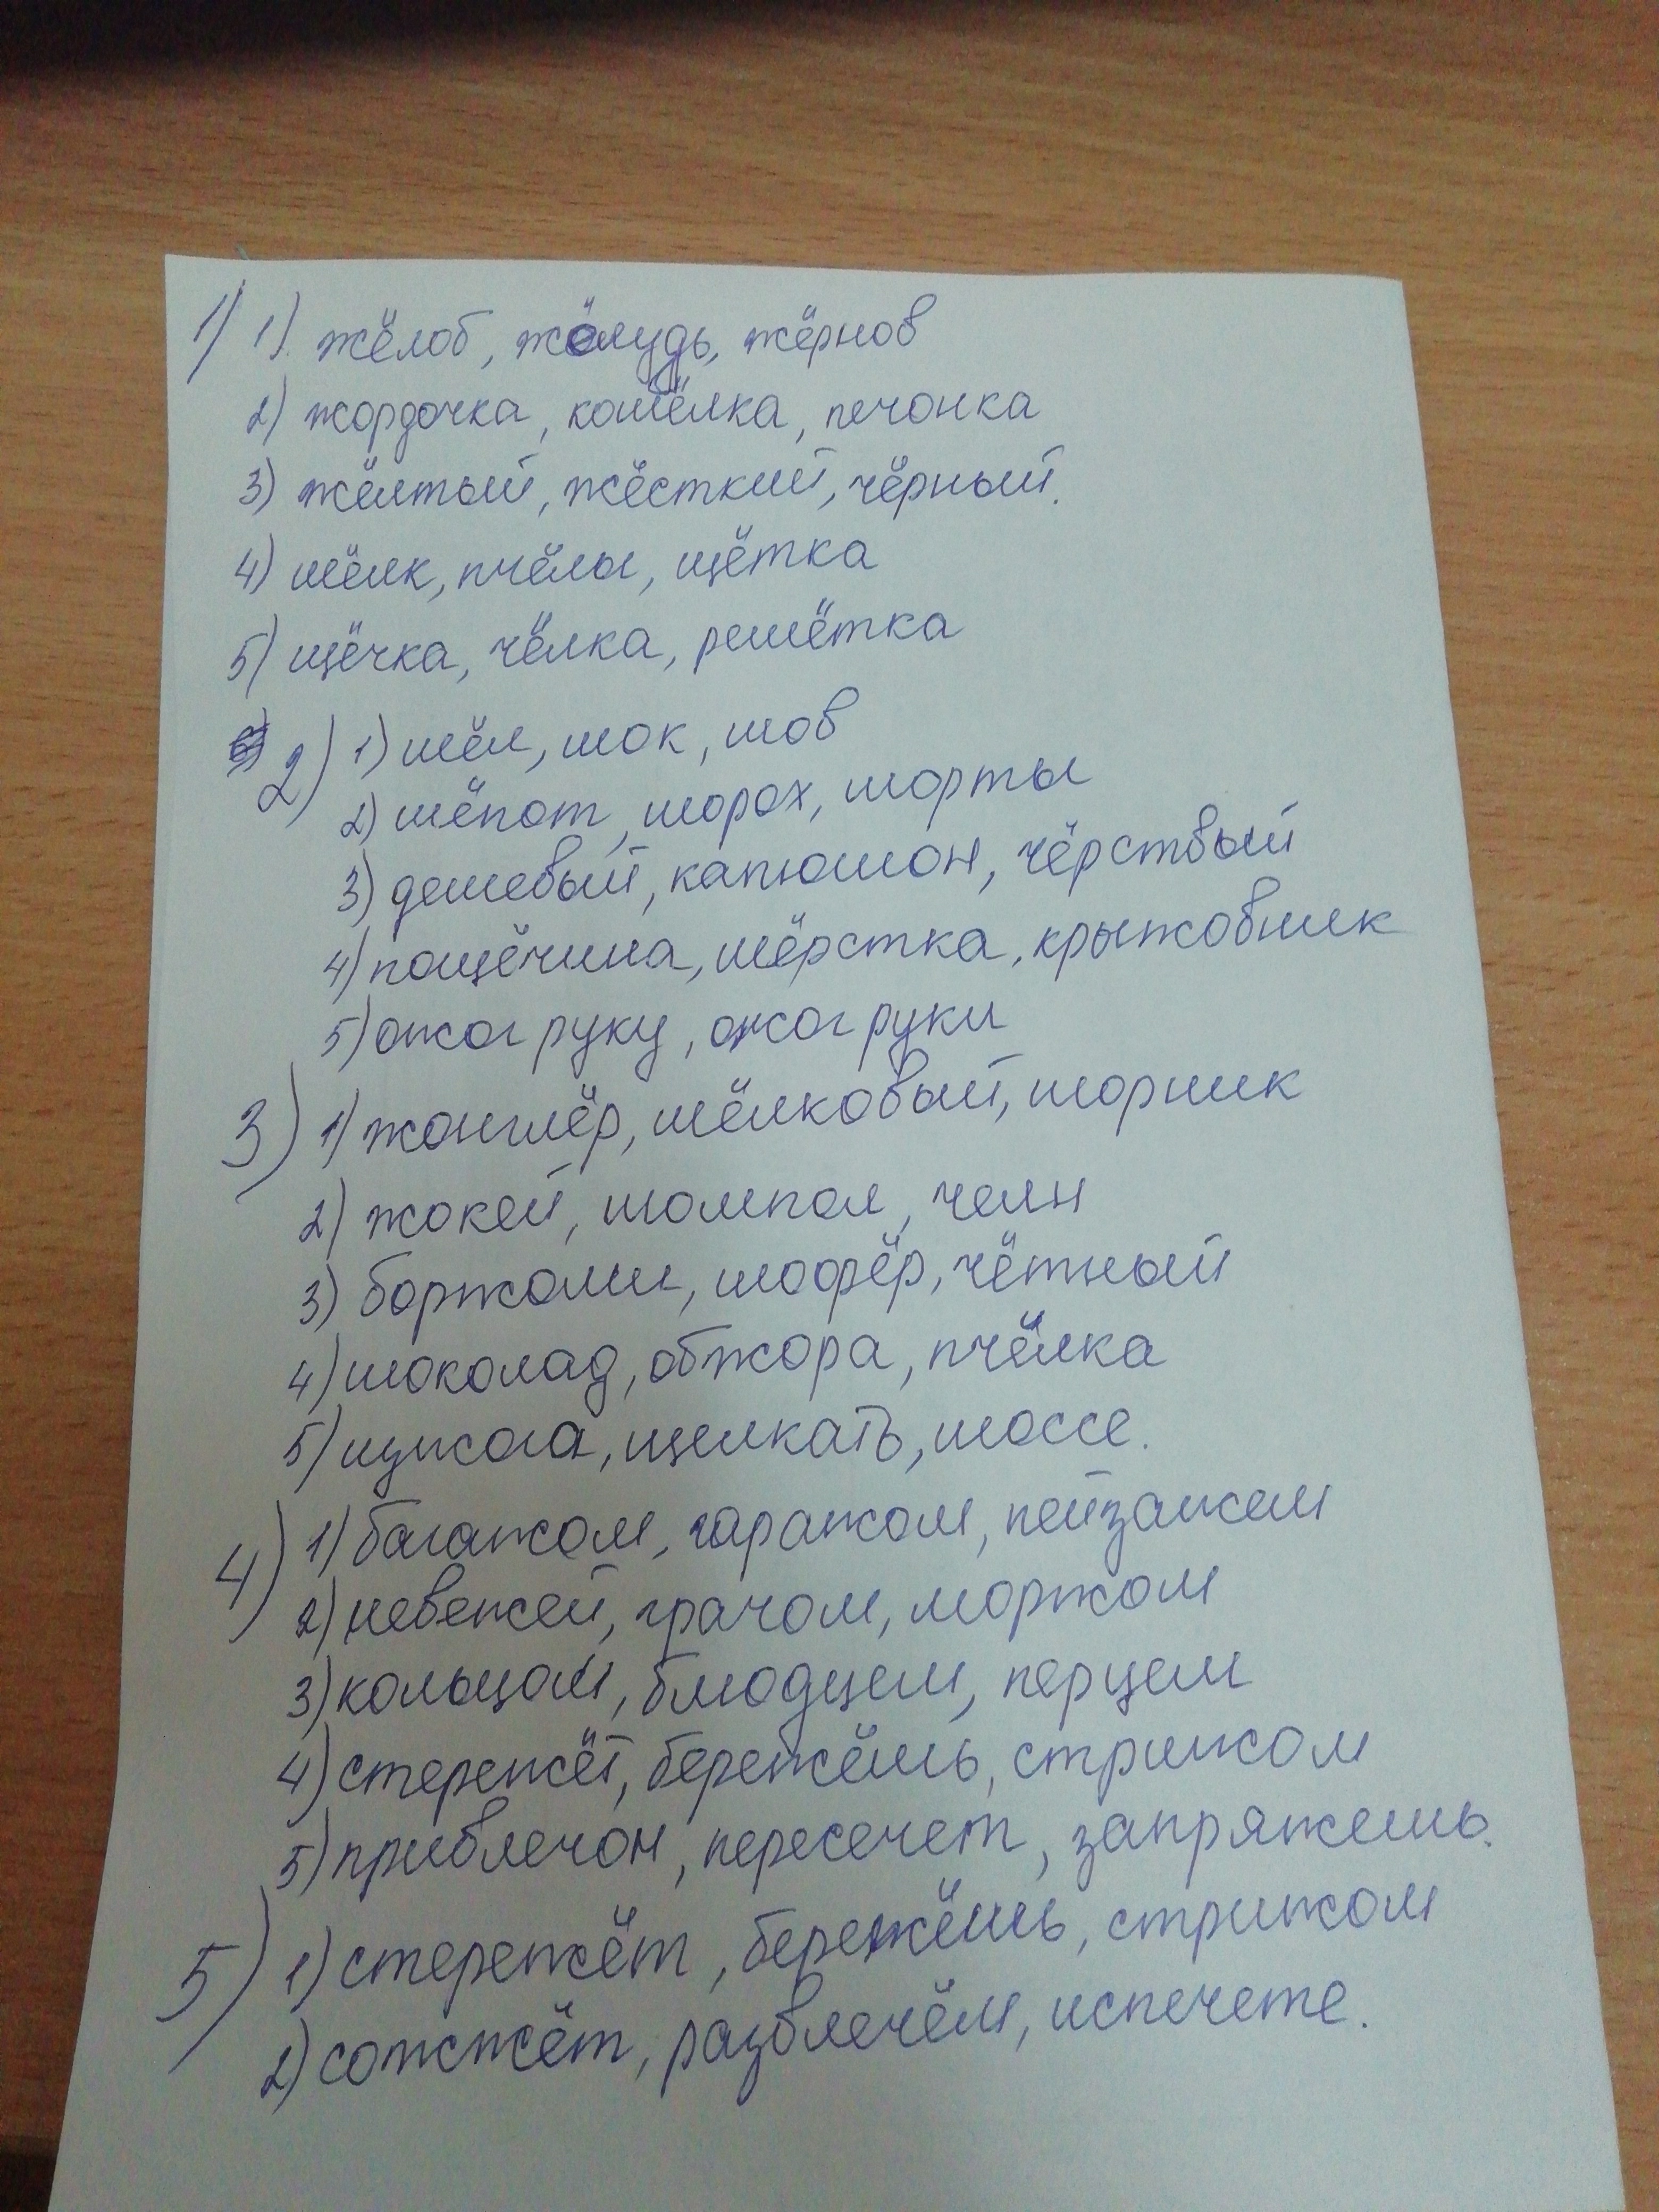 1) 1) жёлоб, жёлудь, жёрнов
2) жордочка, кошёлка, печонка
3) жёлтый, жёсткий, чёрный.
4) шёлк, пчёлы, щётка
5) щёчка, чёлка, решётка
2) 1) шёл, шок, шов
2) шёпот, шорох, шорты
3) дешевый, капюшон, чёрствый
4) пощёчина, шёрстка, крыжовник
5) ожог руку, ожог руки
3) 1) жонглёр, шёлковый, шорник
2) жокей, шомпол, челн
3) боржоми, шофёр, чётный
4) шоколад, обжора, пчёлка
5) изжога, щелкать, шоссе.
4) 1) багажом, гаражом, пейзажем
2) невежей, грачом, моржом
3) кольцом, блюдцем, перцем
4) стережёт, бережёшь, стрижом
5) привлечон, пересечет, запряжешь.
5) 1) стережёт, бережёшь, стрижом
2) сожжёт, развлечём, испечете.